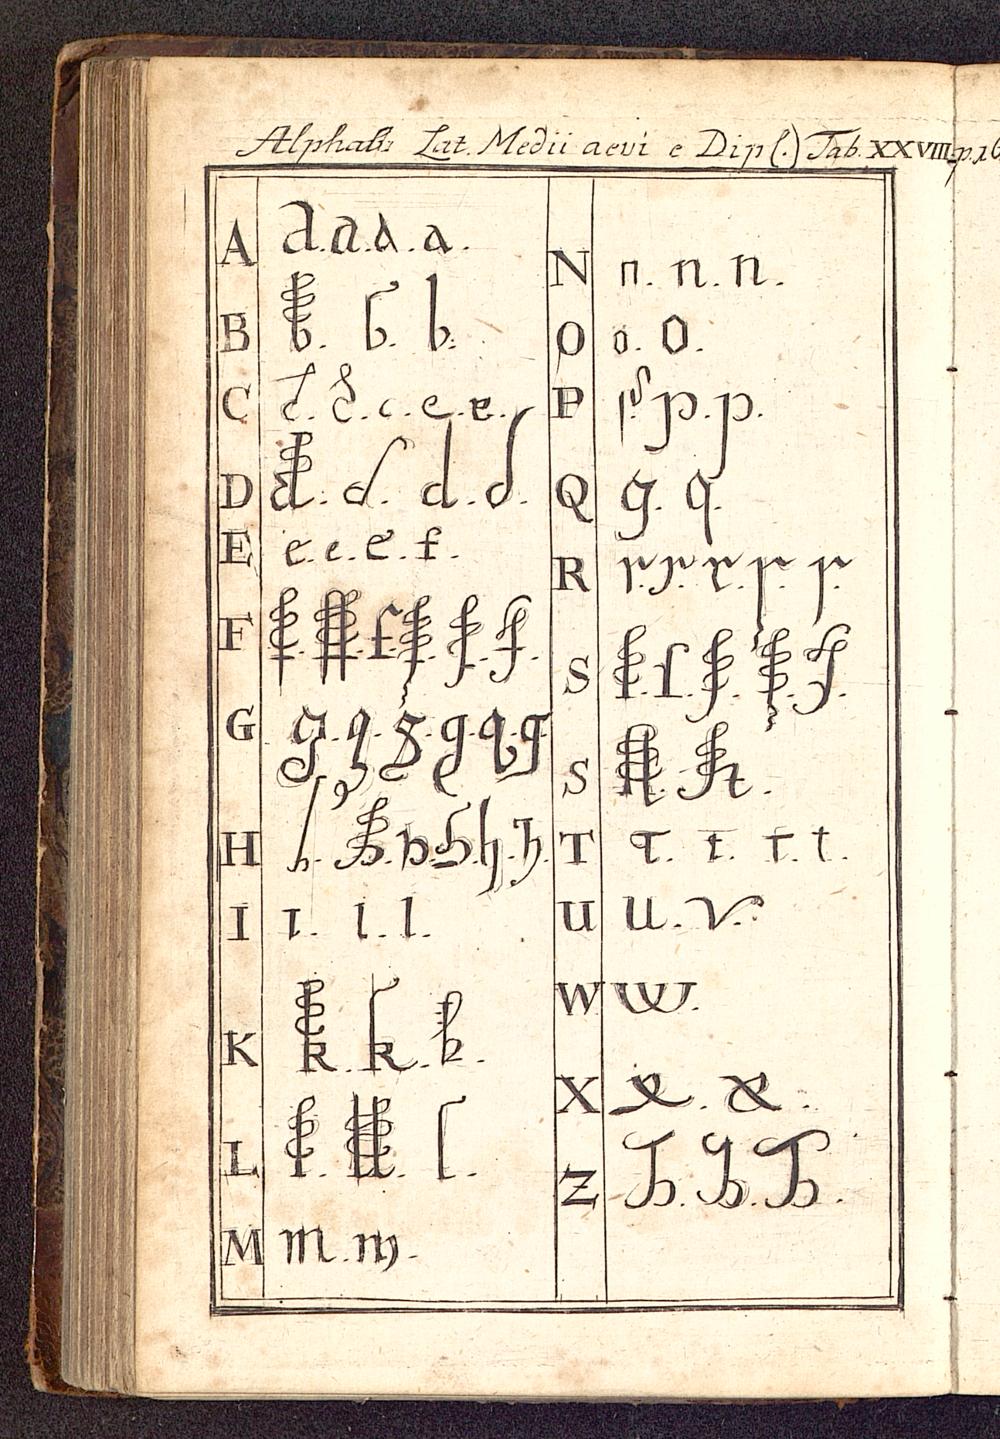 Alphab: Lat. Medii aevi e Dipl(.) Tab. XXVIII. p. 16
A a. a. a. a.
B b. b. b.
C c. c. c. c. c.
D d. d. d. d.
E e. e. e. f.
F f. ff. f. f. f. f.
G g. g. g. g. g. g.
H h. h. h. h. h. h.
I ı. i. l.
K k. k. k.
L l. ll. l.
M m. m.
N n. n. n.
O o. O.
P p. p. p.
Q q. q.
R r. r. r. r. r.
S ſ. ſ. ſ. ſ. ſ.
S ſſ. ſt.
T t. t. t. t.
U u. v.
W w.
X x. x.
Z z. z. z.